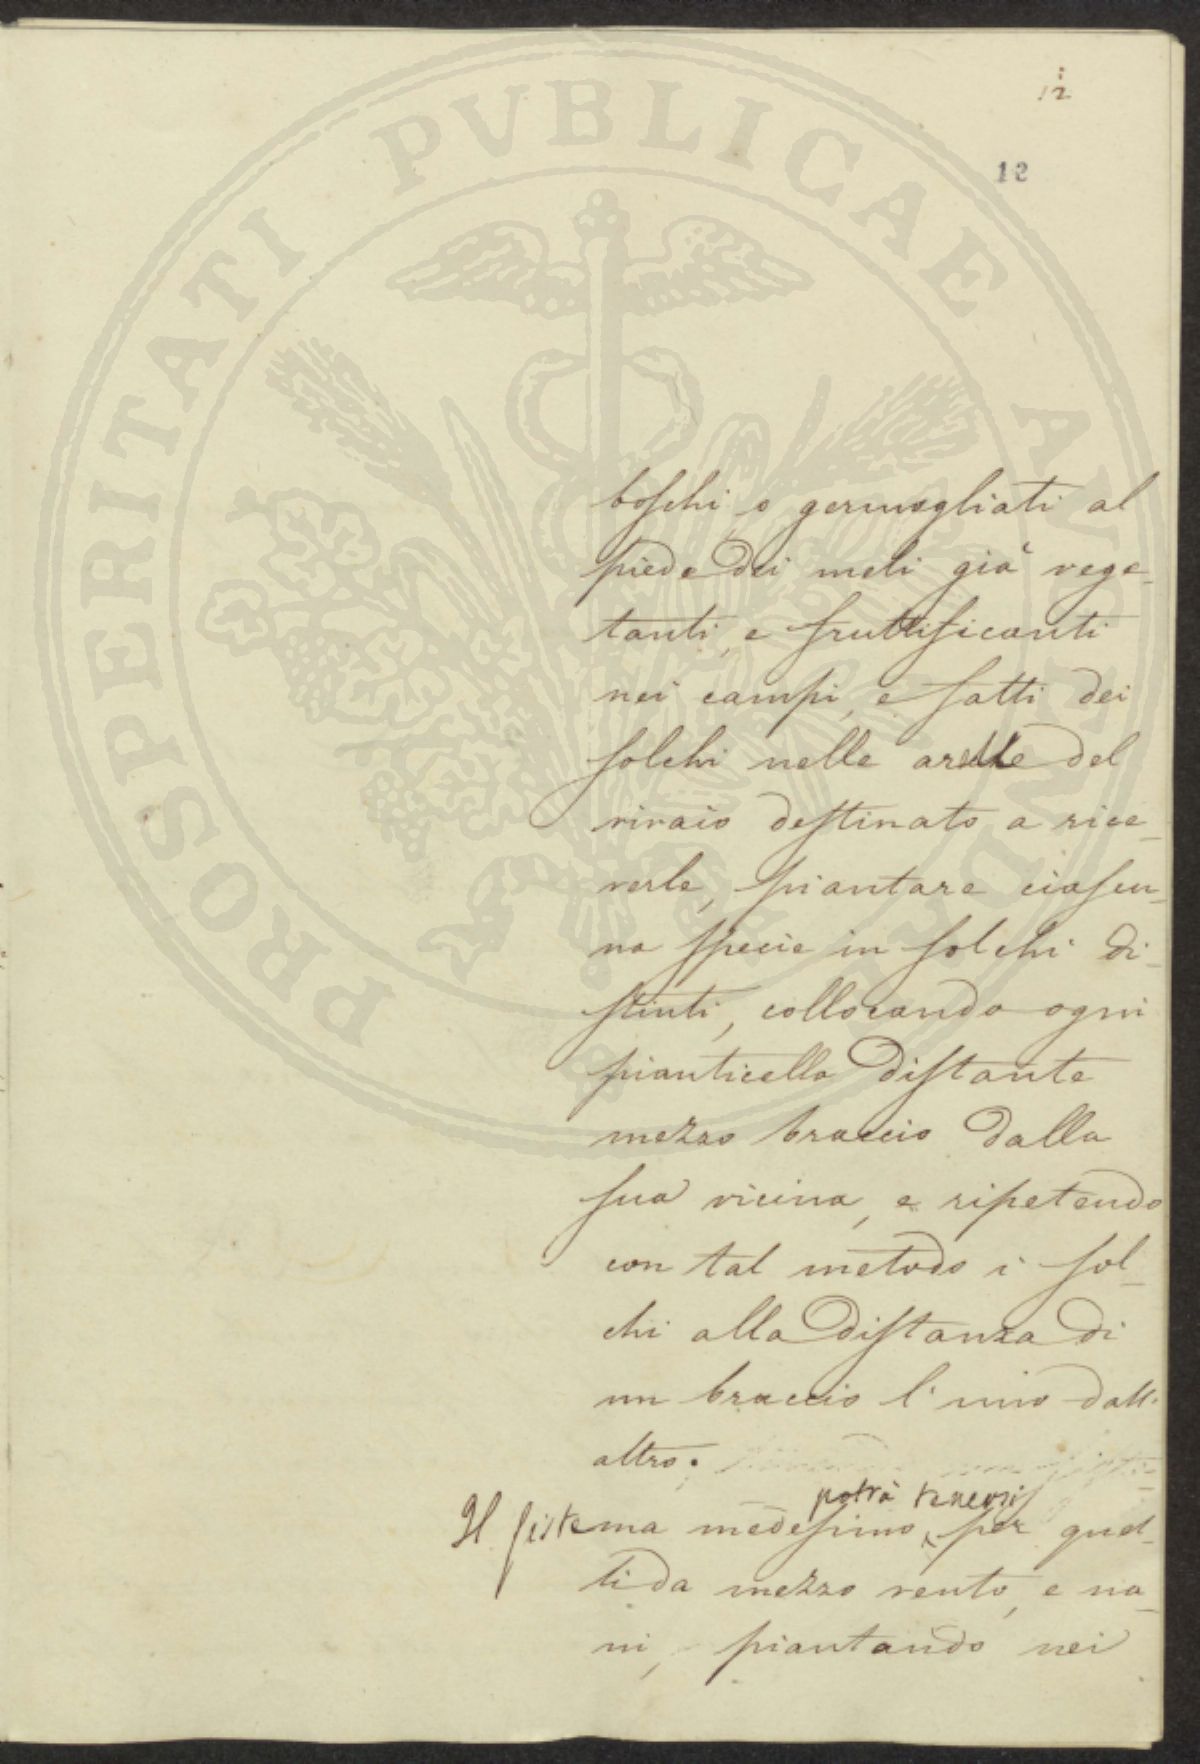 12
12
PROSPERITATI PVBLICAE AVGENDAE
boschi o germogliati al
piede dei meli già vege-
tanti, e fruttificanti
nei campi, e fatti dei
solchi nelle arelle del
vivaio destinato a rice-
verle, piantare ciascu-
na specie in solchi di-
stinti, collocando ogni
pianticella distante
mezzo braccio dalla
sua vicina, e ripetendo
con tal metodo i sol-
chi alla distanza di
un braccio l'uno dall'
altro.
potrà tenersi
Il sistema medesimo per quel-
li da mezzo vento, e na-
ni, piantando nei